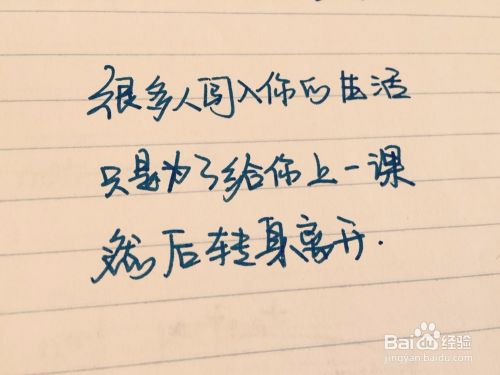 很多人闯入你的生活
只是为了给你上一课
然后转身离开.
Baidu经验
jingyan.baidu.com